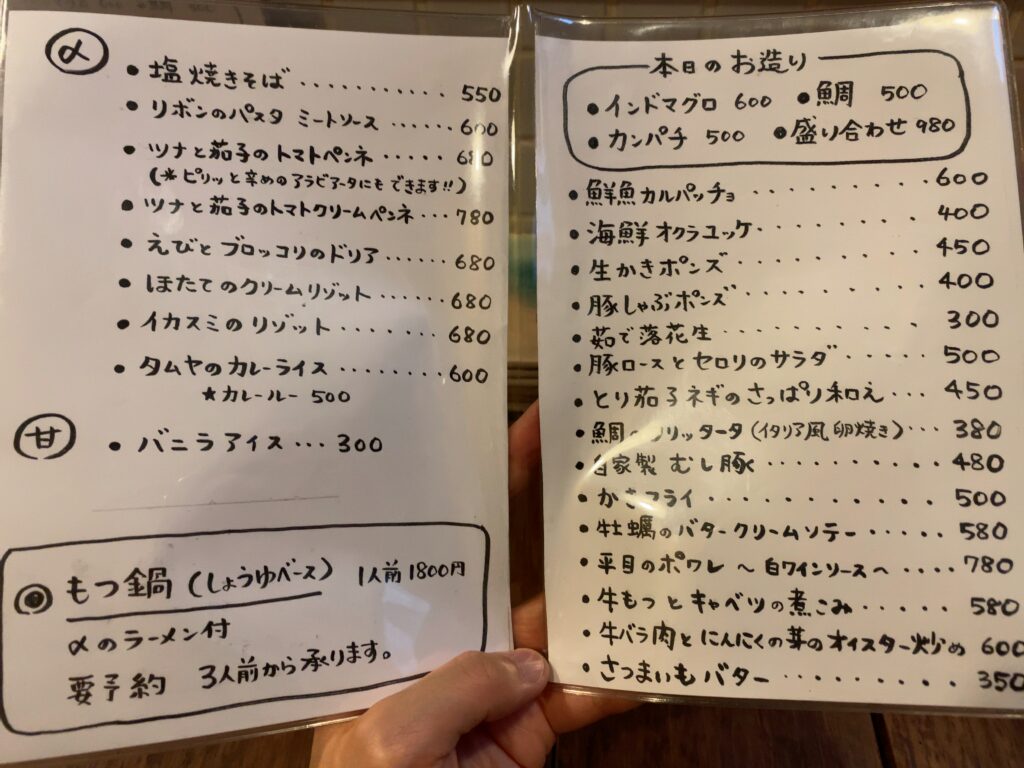 〆
・塩焼きそば ........... 550
・リボンのパスタ ミートソース ...... 600
・ツナと茄子のトマトペンネ ..... 680
(＊ピリッと辛めのアラビアータにもできます!!)
・ツナと茄子のトマトクリームペンネ ... 780
・えびとブロッコリのドリア ..... 680
・ほたてのクリームリゾット ....... 680
・イカスミのリゾット ........ 680
・タムヤのカレーライス ........ 600
★カレールー 500
甘
・バニラアイス ... 300
◉もつ鍋(しょうゆベース) 1人前1800円
〆のラーメン付
要予約 3人前から承ります。
本日のお造り
・インドマグロ 600 ・鯛 500
・カンパチ 500 ・盛り合わせ 980
・鮮魚カルパッチョ ......... 600
・海鮮オクラユッケ ......... 400
・生かきポンズ .......... 450
・豚しゃぶポンズ .......... 400
・茹で落花生 ........... 300
・豚ロースとセロリのサラダ ..... 500
・とり茄子ネギのさっぱり和え ... 450
・鯛のフリッタータ(イタリア風卵焼き) ... 380
・自家製 むし豚 .......... 480
・かきフライ ............ 500
・牡蠣のバタークリームソテー ..... 580
・平目のポワレ 〜白ワインソースへ .... 780
・牛もつとキャベツの煮こみ ..... 580
・牛バラ肉とにんにくの芽のオイスター炒め 600
・さつまいもバター ......... 350